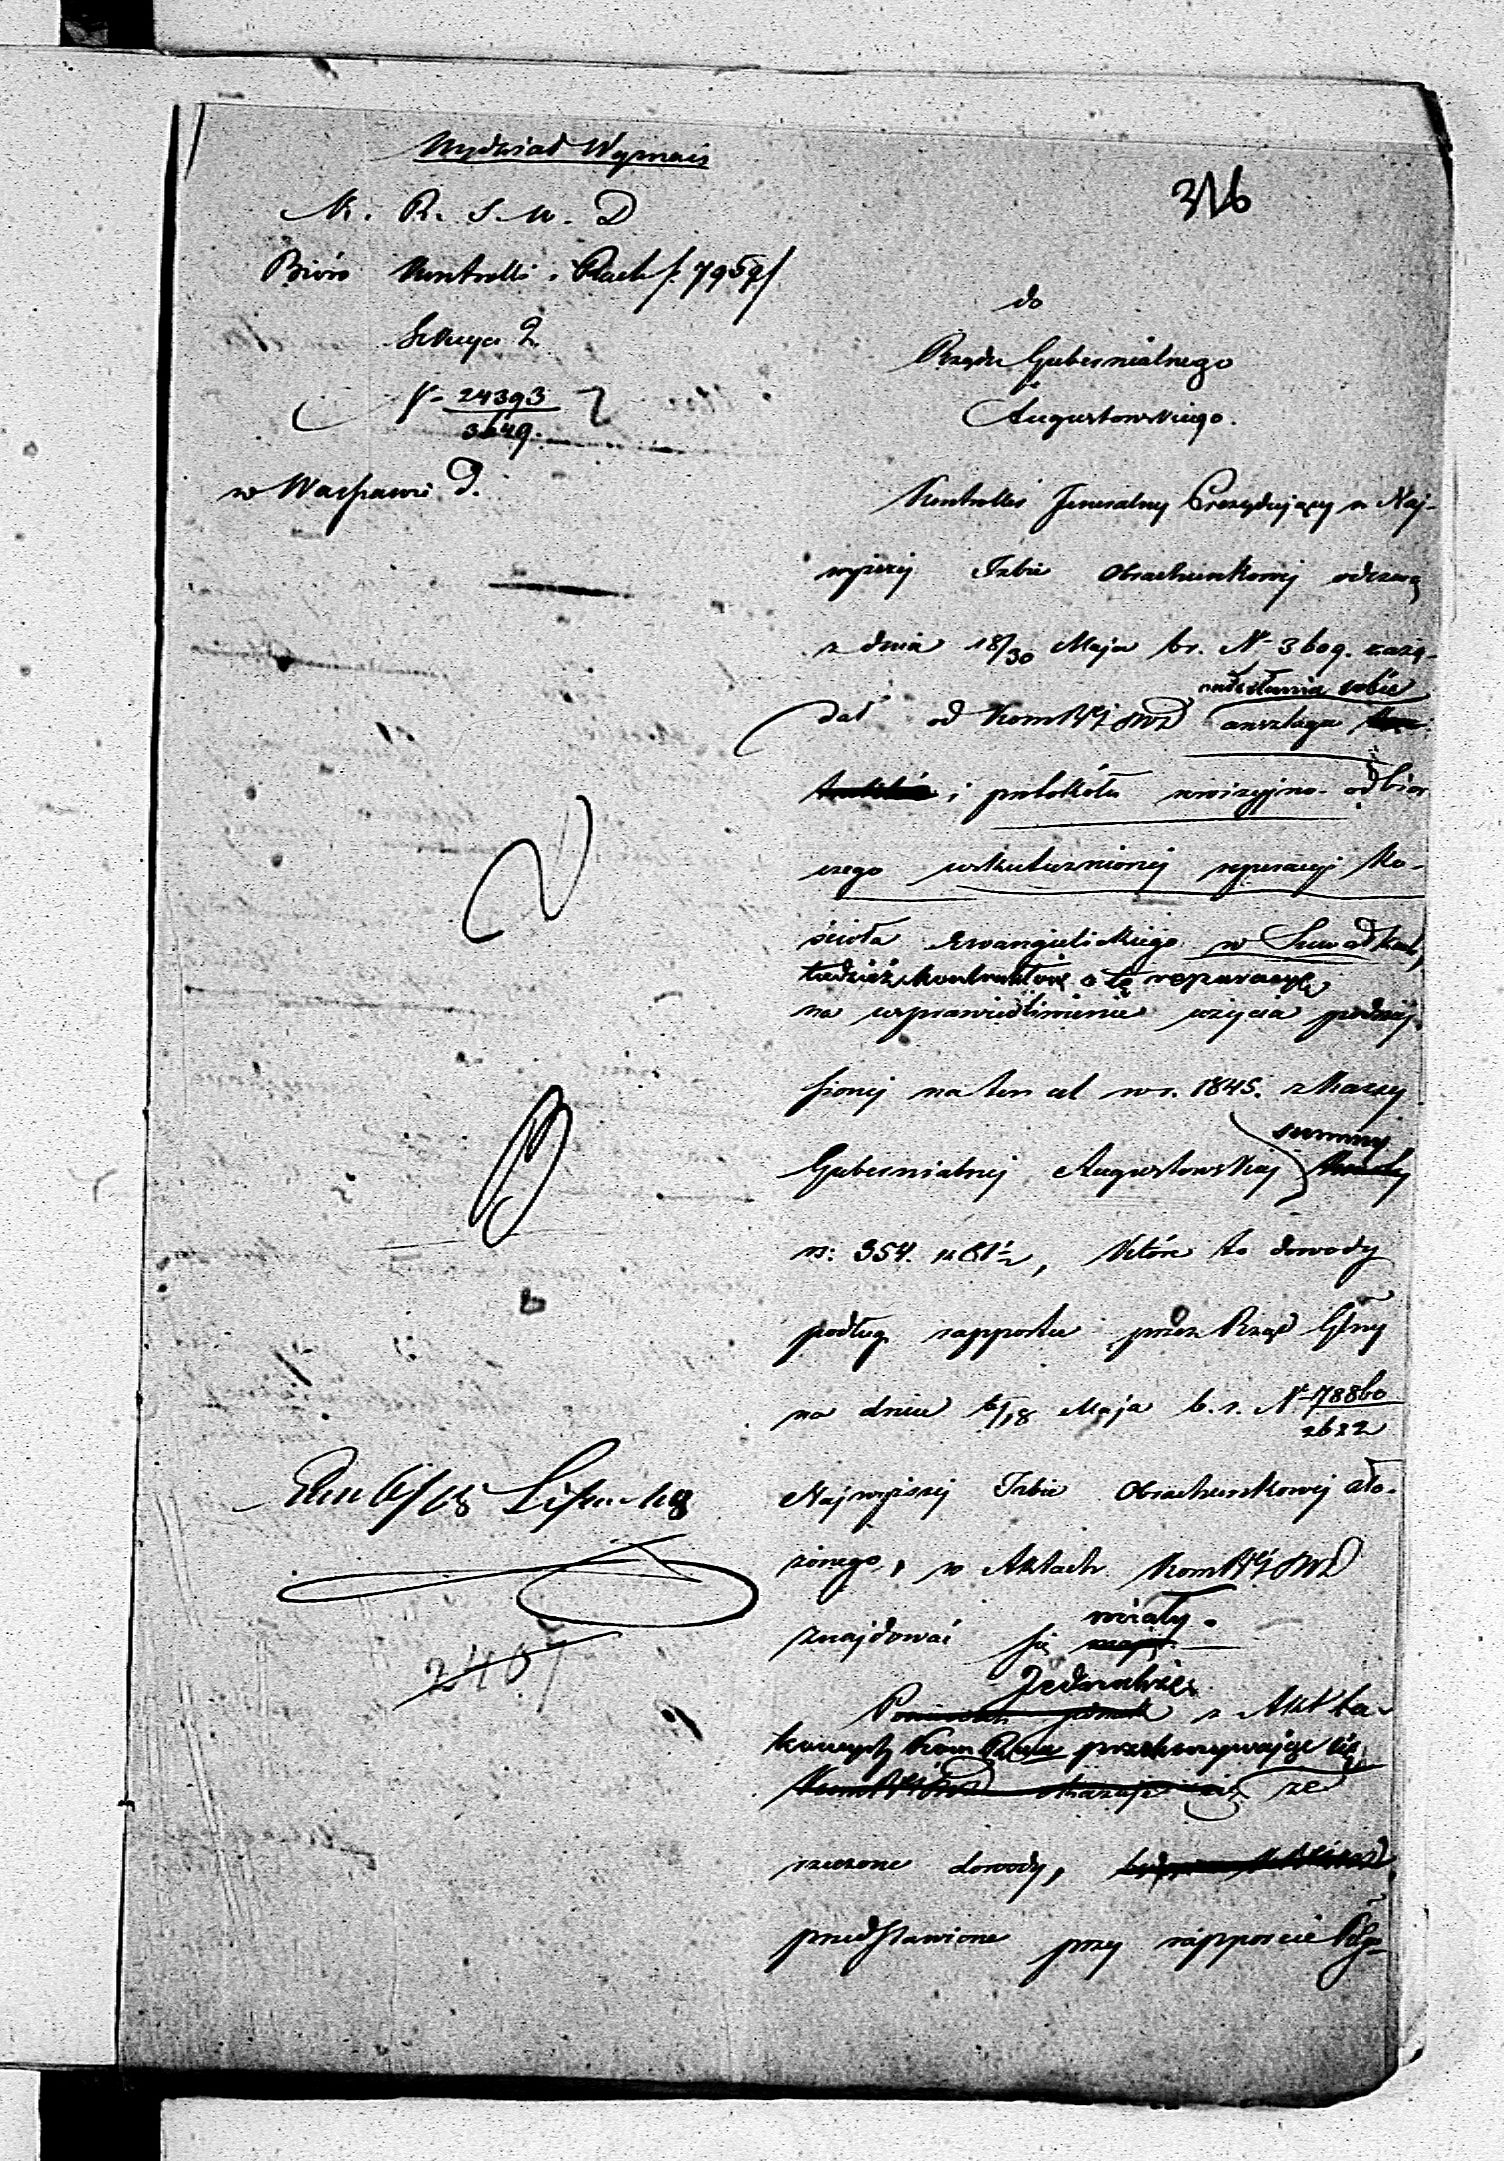 Wydział Wyznań
316
K. R. S. W. D
Bióro Kontrolli i Rach /: 7959/
Sekcya 2
N 24393
3649.
w Warszawie d.
do
Rządu Gubernialnego
Augustowskiego.
Kontroller Jeneralny Prezydujący w Naj-
wyższej Izbie Obrachunkowej odezwą
z dnia 18/30 Maja br. N 3609. zażą-
nadesłania sobie
dał od KomRządSWD anszlagu
i protokółu rewizyjno-odbior
czego uskutecznionej reperacyi Ko-
ścioła Ewangielickiego w Suwałkach,
tudzież kontraktów o tę reparacyę
na usprawiedliwienie użycia podnie
sionej na ten cel w r. 1845. z Kassy
summy
Gubernialnej Augustowskiej
rs: 354. k 81½, które to dowody
podług rapportu przez Rząd Gbny
na dniu 6/18 Maja b. r. N 78860
2622
Najwyższej Izbie Obrachunkowej zło-
żonego, w Aktach KomRządSWD
miały.
znajdować się mają.
Jednakże
z Akt ta-
kowych Kom Rząd przekonywając się
że
rzeczone dowody,
przedstawione przy rapporcie Rządu
2407